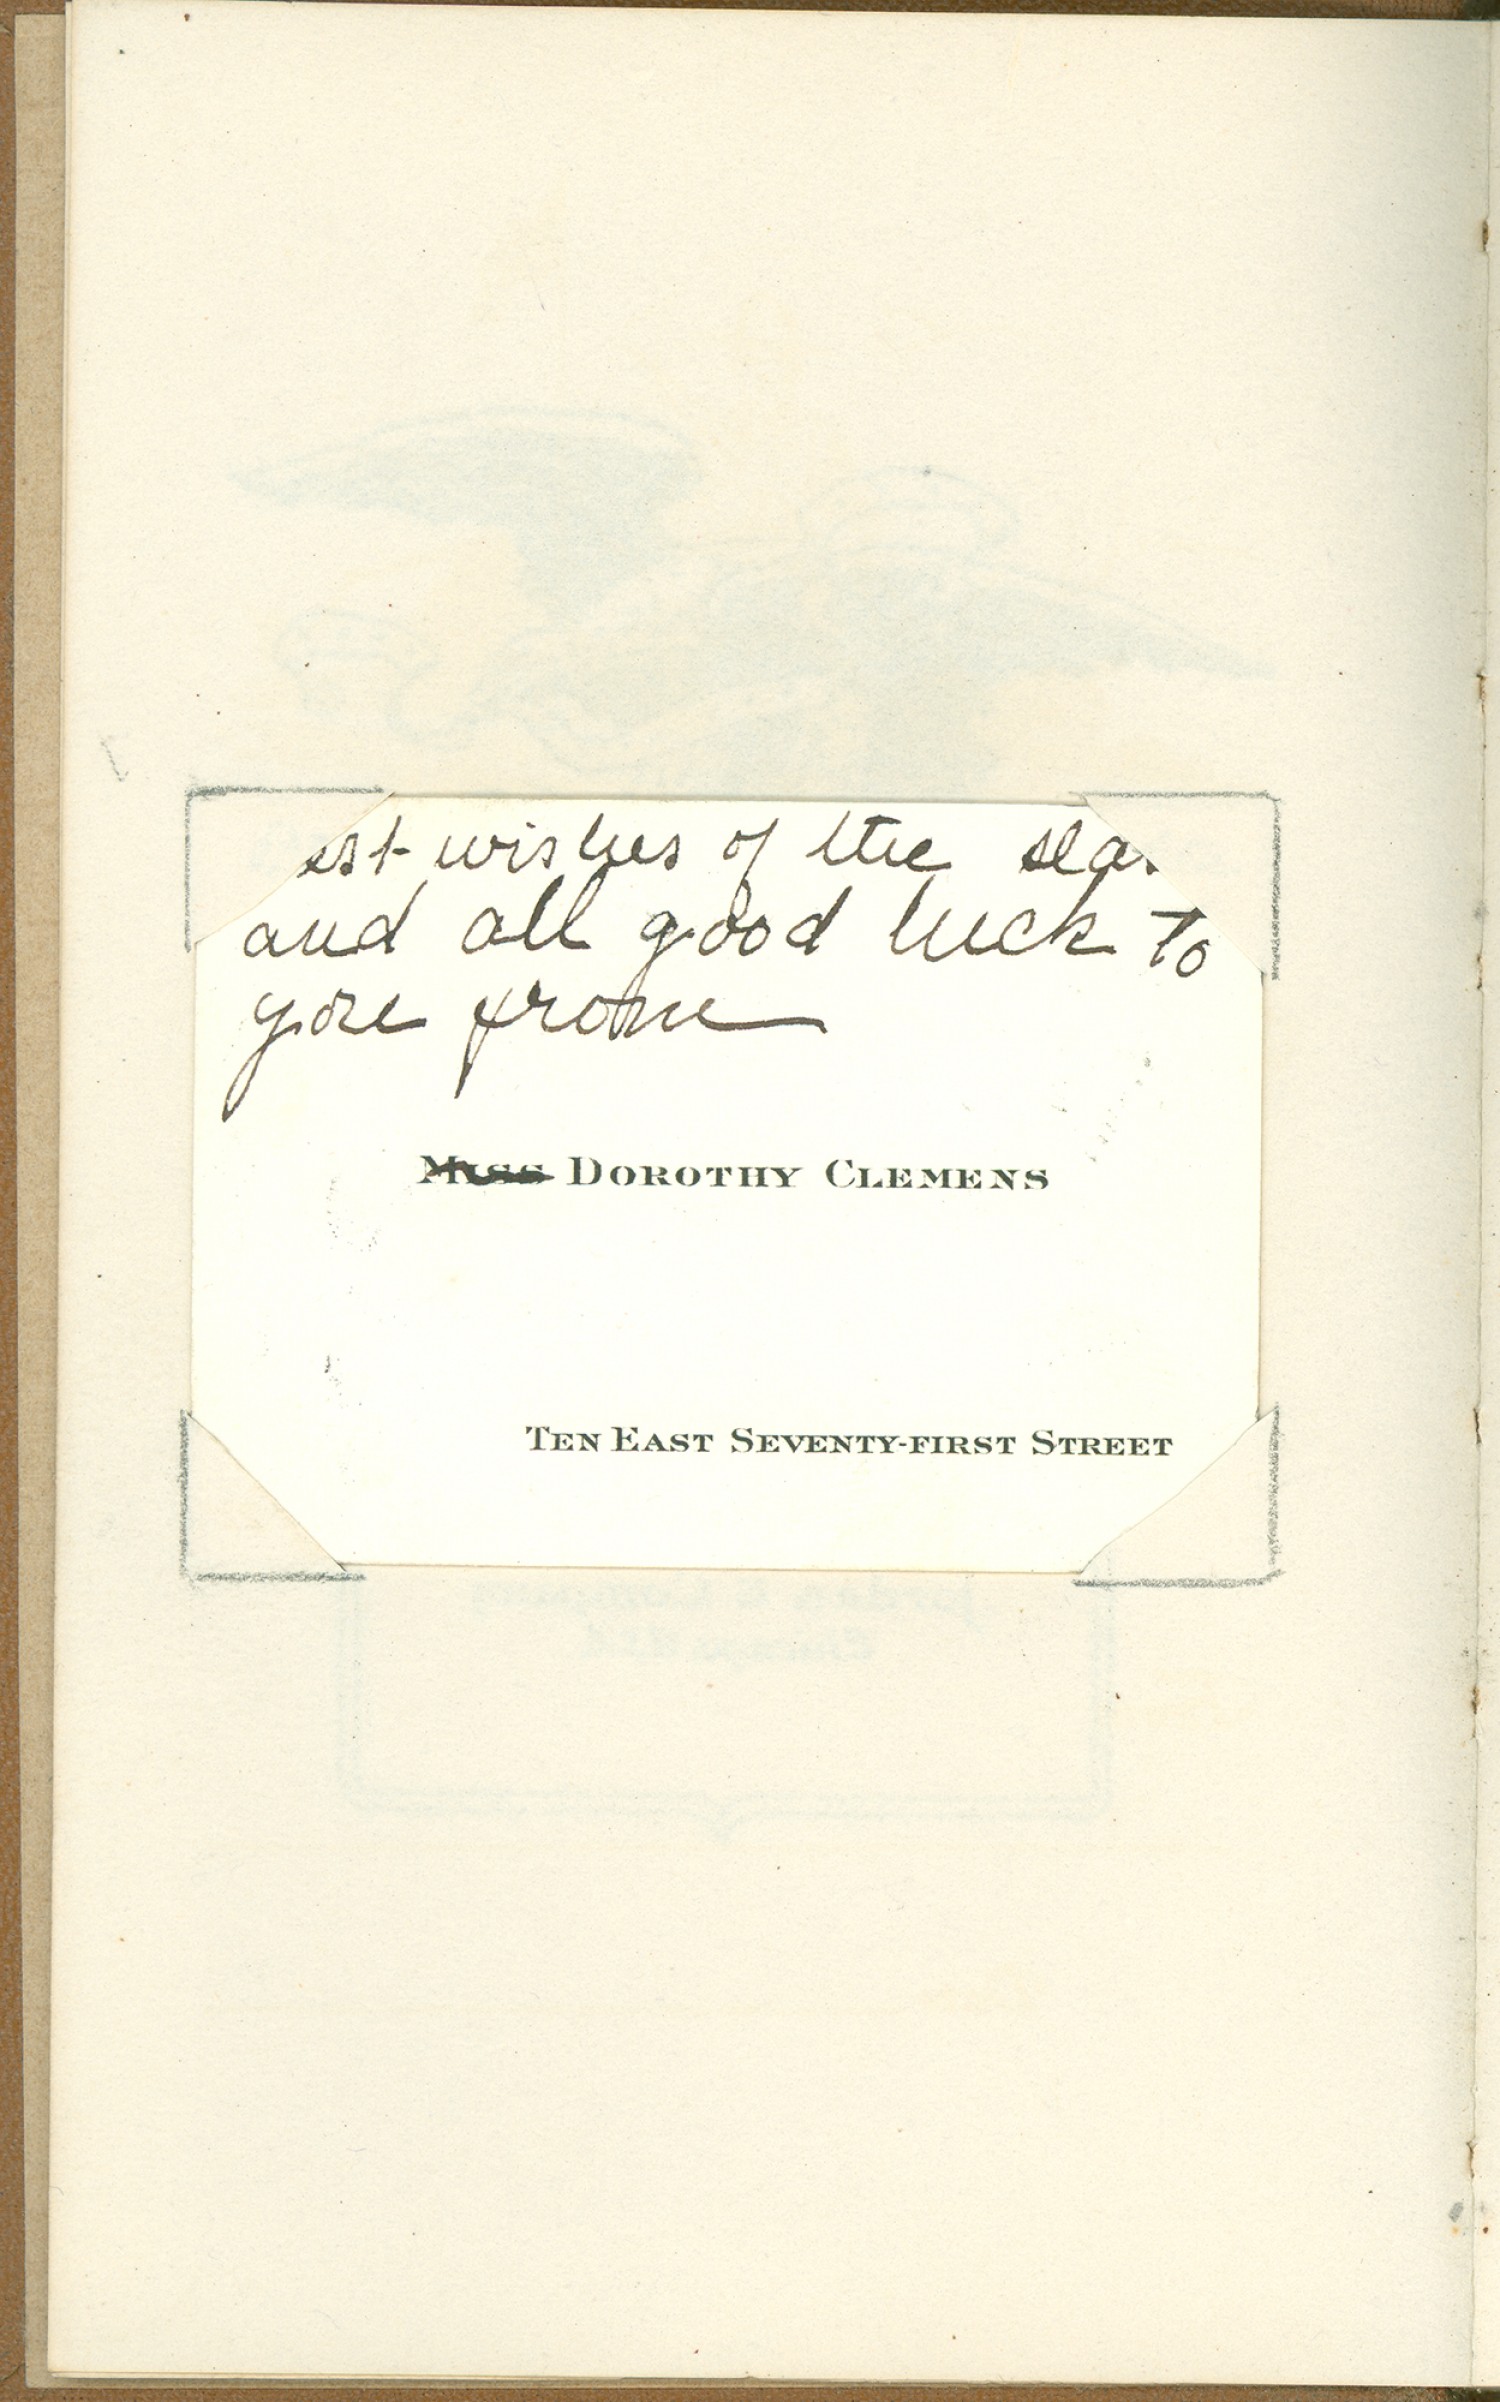 est wishes of the sea
and all good luck to
you from
Miss Dorothy Clemens
Ten East Seventy-first Street